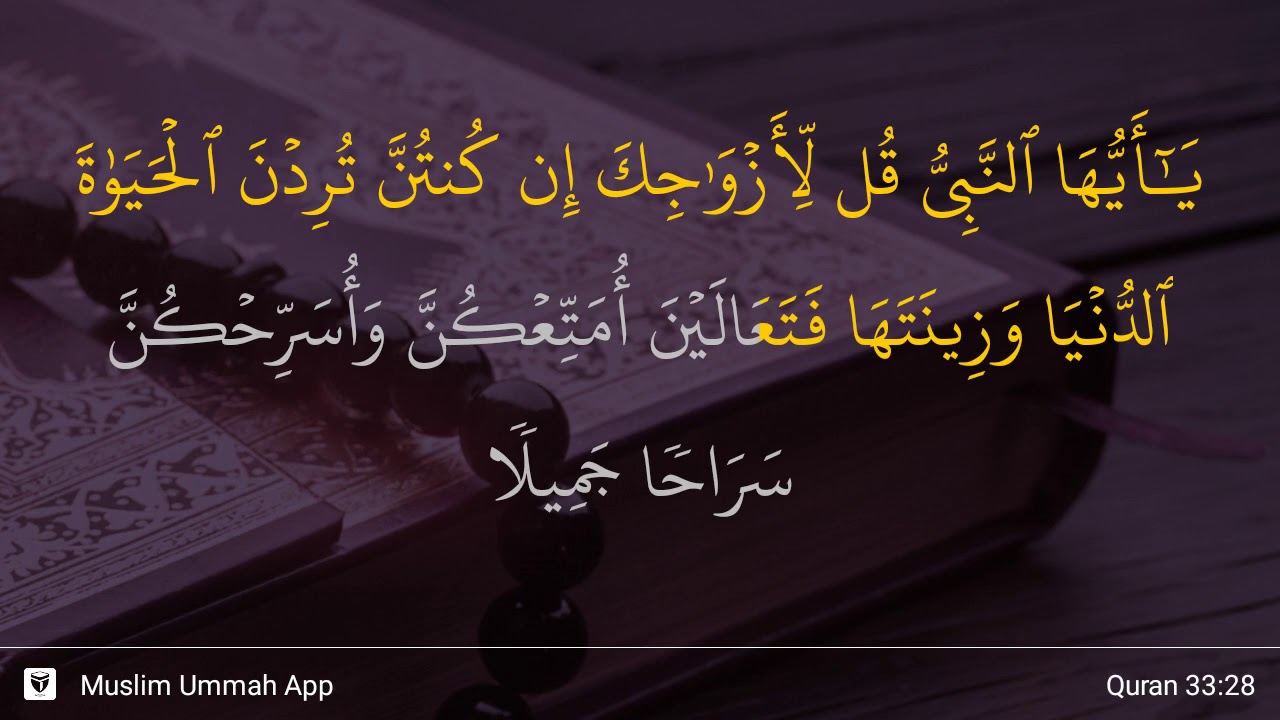 يَـٰٓأَيُّهَا ٱلنَّبِىُّ قُل لِّأَزْوَٰجِكَ إِن كُنتُنَّ تُرِدْنَ ٱلْحَيَوٰةَ
ٱلدُّنْيَا وَزِينَتَهَا فَتَعَالَيْنَ أُمَتِّعْكُنَّ وَأُسَرِّحْكُنَّ
سَرَاحًا جَمِيلًا
Muslim Ummah App
Quran 33:28